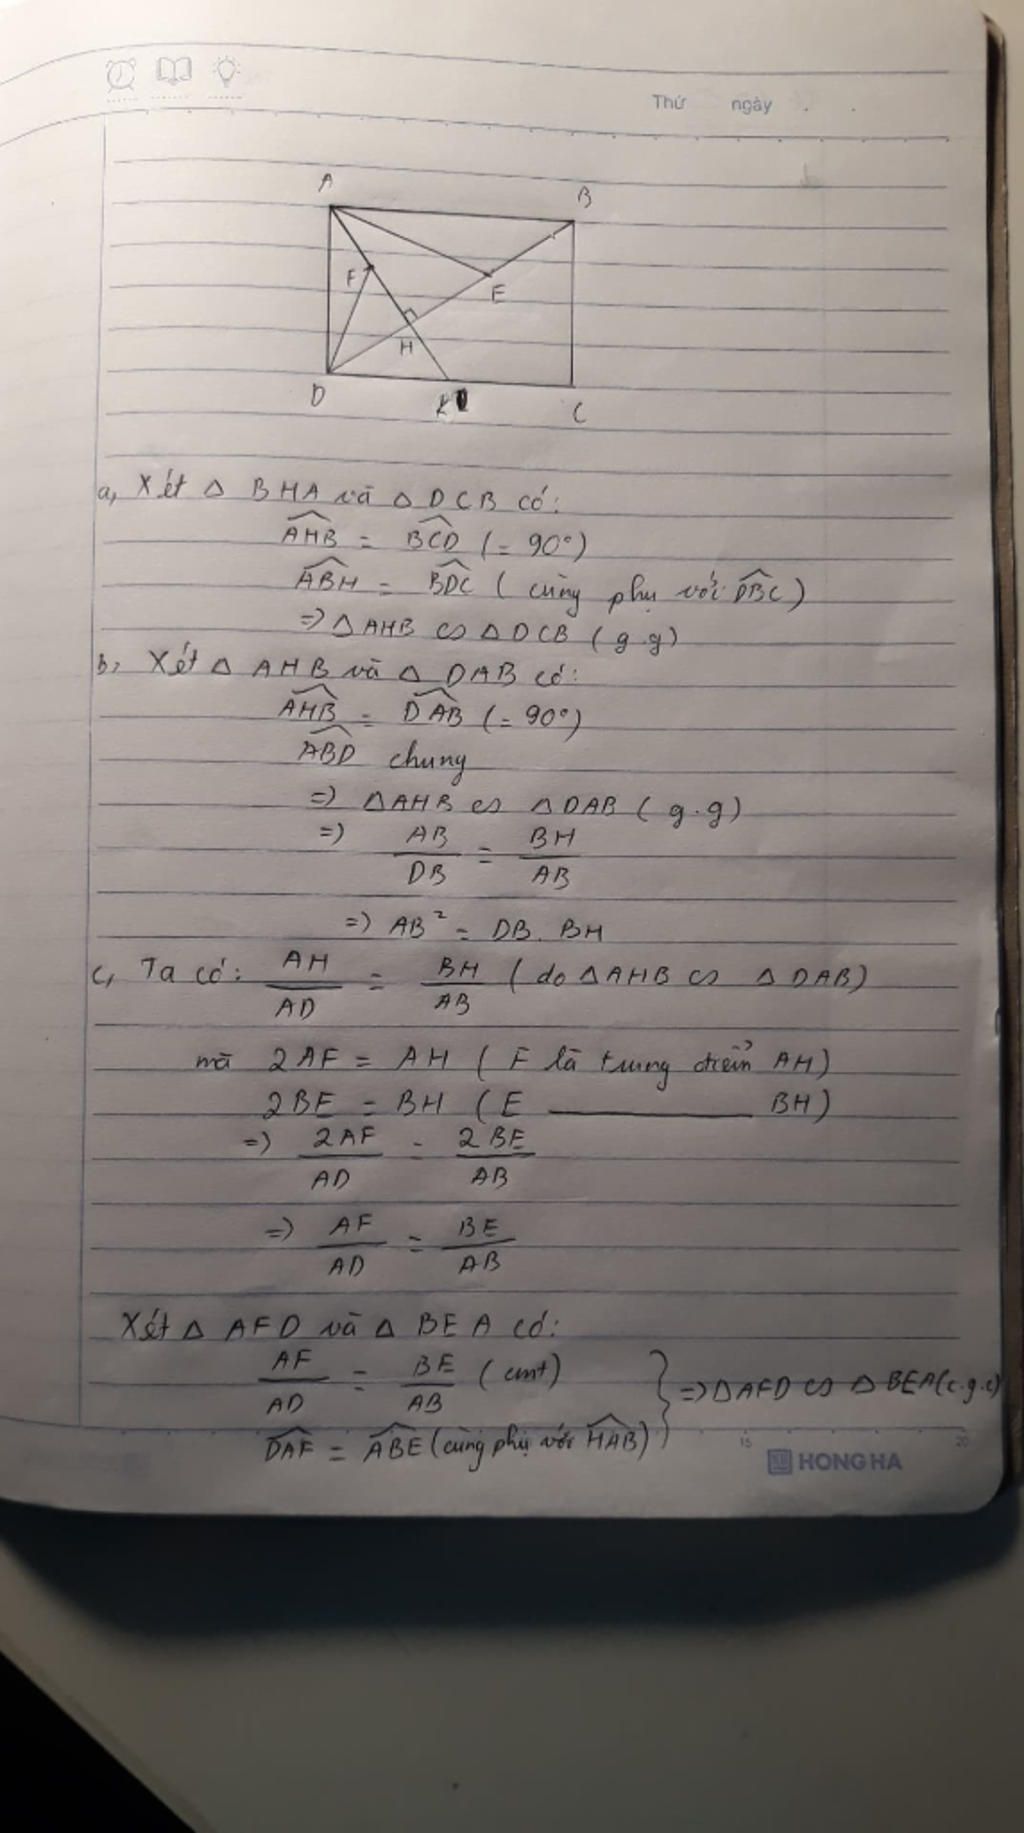 Thứ ngày . .
A
B
F
E
H
D
K
C
a, Xét △ BHA và △ DCB có:
$\widehat{AHB}$ = $\widehat{BCD}$ (= 90°)
$\widehat{ABH}$ = $\widehat{BDC}$ ( cùng phụ với $\widehat{DBC}$)
=> △AHB ∽ △DCB ( g.g)
b, Xét △ AHB và △ DAB có:
$\widehat{AHB}$ = $\widehat{DAB}$ (= 90°)
$\widehat{ABD}$ chung
=> △AHB ∽ △DAB ( g.g)
=> $\frac{AB}{DB}$ = $\frac{BH}{AB}$
=> AB² = DB. BH
c, Ta có: $\frac{AH}{AD}$ = $\frac{BH}{AB}$ ( do △AHB ∽ △DAB)
mà 2AF = AH ( F là trung điểm AH)
2BE = BH ( E ———— BH)
=> $\frac{2AF}{AD}$ = $\frac{2BE}{AB}$
=> $\frac{AF}{AD}$ = $\frac{BE}{AB}$
Xét △ AFD và △ BEA có:
$\frac{AF}{AD}$ = $\frac{BE}{AB}$ ( cmt)
$\widehat{DAF}$ = $\widehat{ABE}$ (cùng phụ với $\widehat{HAB}$)
} => △AFD ∽ △BEA(c.g.c)
15
20
HONG HA